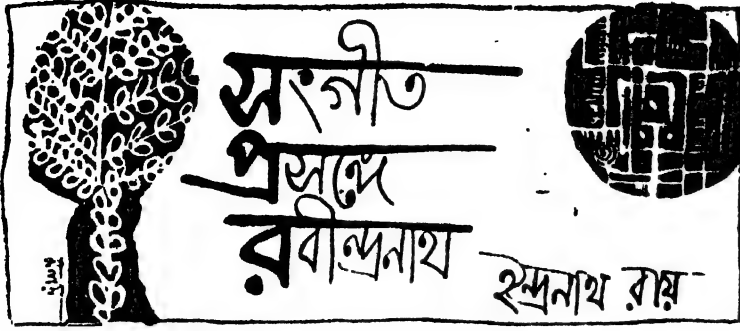 সংগীত
প্রসঙ্গে
রবীন্দ্রনাথ
ইন্দ্রনাথ রায়